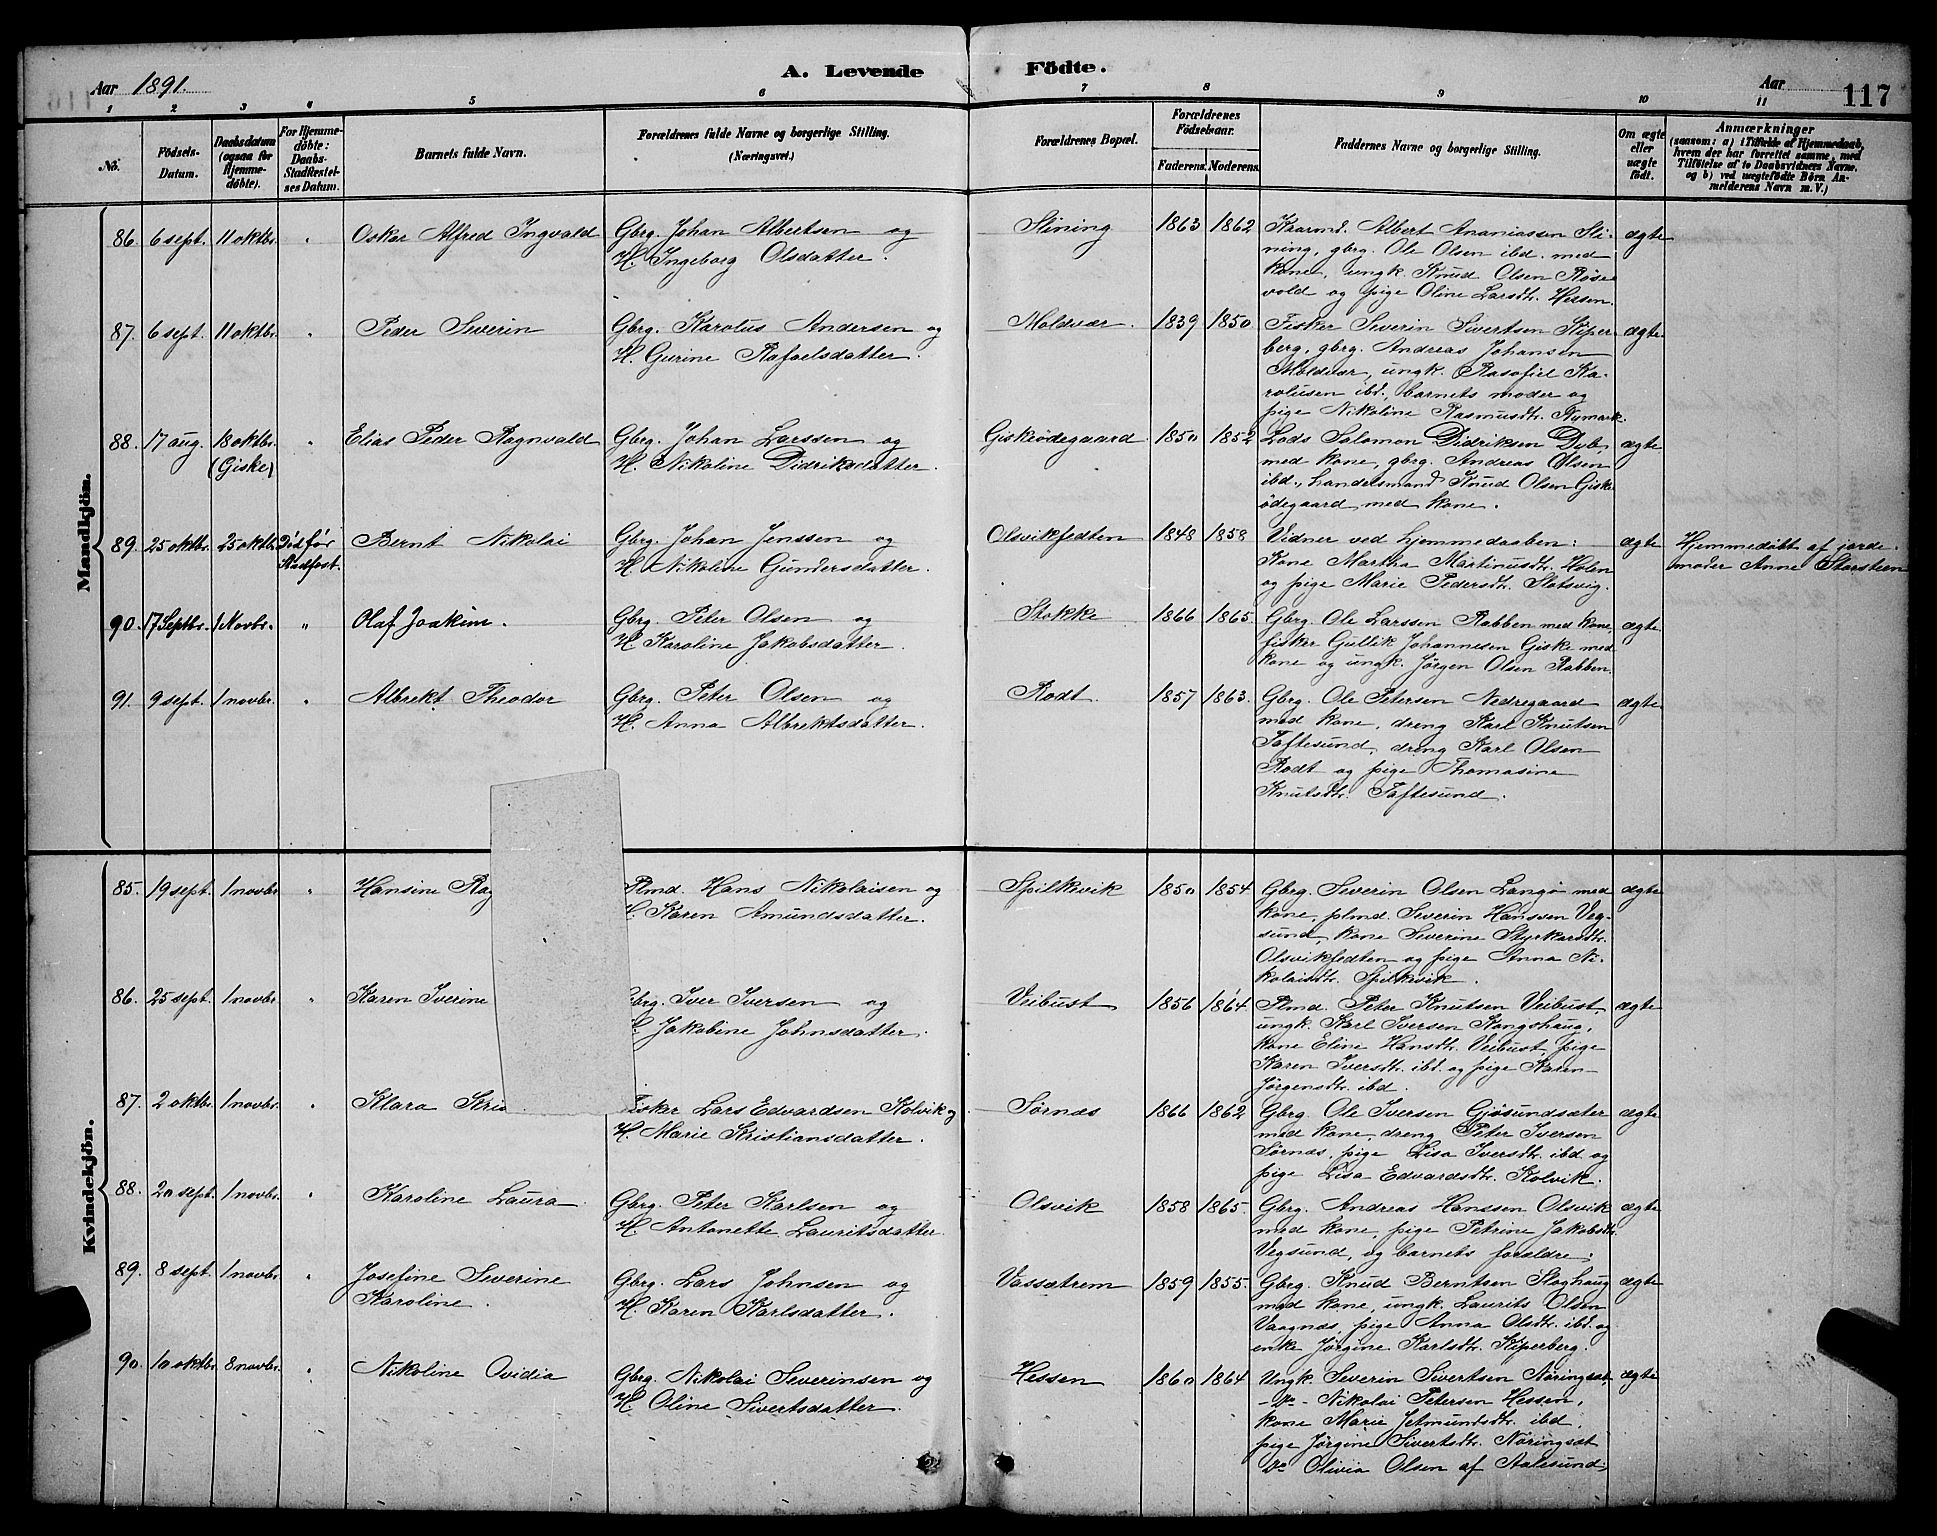 Aar 1891.
A. Levende Födte.
Aar 117
1 2 3 4 5 6 7 8 9 10 11
No.
Födsels-Datum.
Daabsdatum (ogsaa for Hjemmedöbte).
For Hjemmedöbte: Daabs-Stadfæstelses Datum.
Barnets fulde Navn.
Forældrenes fulde Navne og borgerlige Stilling.
(Næringsvei.)
Forældrenes Bopæl.
Forældrenes Födselsaar.
Faderens. Moderens.
Faddernes Navne og borgerlige Stilling.
Om ægte eller uægte födt.
Anmærkninger
(saasom: a) i Tilfælde af Hjemmedaab,
hvem der har forrettet samme, med
Tilföielse af to Daabsvidners Navne,
og b) ved uægtefödte Börn Anmelderens Navn m.V.)
Mandkjön.
86. 6 sept. 11 oktbr. " Oskar Alfred Ingvald Gbrg. Johan Albertsen og Slining 1863 1862 Kaarmd. Albert Ananiassen Sli- ægte
H. Ingeborg Olsdatter. ning, gbrg. Ole Olsen ibd. med
kone, ungk. Knud Olsen Røse-
vold og pige Oline Larsdtr. Hessen.
87. 6 sept. 11 oktbr. " Peder Severin Gbrg. Karolus Andersen og Moldvær. 1839 1850 Fisker Severin Sivertsen Kiper- ægte.
H. Gurine Rafaelsdatter. berg, gbrg. Andreas Johansen
Moldvær, ungk. Rasofiel Ka-
rolusen ibd., barnets moder og
pige Nikoline Rasmusdtr. Nymark.
88. 17 aug. 18 oktbr. " Elias Peder Ragnvald Gbrg. Johan Larssen og Giskeødegaard 1850 1852 Lods Salomon Didriksen Dyb, ægte
(Giske) H. Nikoline Didriksdatter. med kone, gbrg. Andreas Olsen
ibd., handelsmand Knud Olsen Giske
ødegaard med kone.
89. 25 oktbr. 25 oktbr. Död før Bernt Nikolai Gbrg. Johan Jenssen og Olsvikfedten 1848 1858 Vidner ved hjemmedaaben: ægte Hjemmedöbt af jorde-
Stadfæst. H. Nikoline Gundersdatter. Kone Martha Martinusdtr. Holen moder Anne Storsteen
og pige Marie Pedersdtr. Slotsvig.
90. 17 Septbr. 1 Novbr. " Olaf Joakim. Gbrg. Peter Olsen og Stokke 1866 1865. Gbrg. Ole Larssen Rabben med kone, ægte
H. Karoline Jakobsdatter. fisker Gullik Johannesen Giske med
kone og ungk. Jörgen Olsen Rabben.
91. 9 sept. 1 novbr. " Albrekt Theodor Gbrg. Peter Olsen og Rodt. 1857 1863. Gbrg. Ole Petersen Nedregaard ægte
H. Anna Albrektsdatter. med kone, dreng Karl Knutsen
Toftesund, dreng Karl Olsen
Rodt og pige Thomasine
Knutsdtr. Toftesund.
Kvindekjön.
85. 19 sept. 1 novbr. " Hansine Rag Plmd. Hans Nikolaisen og Spilkevik 1850 1854 Gbrg. Severin Olsen Langø med ægte
H. Karen Amundsdatter. kone, plmd. Severin Hanssen Veg-
sund, kone Severine Styrkarsdtr.
Olsvikfedten og pige Anna Ni-
kolaidtr. Spilkevik.
86. 25 sept. 1 novbr. " Karen Iverine Gbrg. Iver Iversen og Veibust 1856 1864. Plmd. Peter Knutsen Veibust, ægte
H. Jakobine Johnsdatter. ungk. Karl Iversen Kongshaug,
kone Eline Hansdtr. Veibust, pige
Karen Iversdtr. ibd. og pige Karen
Jørgensdtr. ibd.
87. 2 oktbr. 1 novbr. " Klara Kris Fisker Lars Edvardsen Kolvik og Sørnæs 1866 1862 Gbrg. Ole Iversen Gjøsundsæter ægte
H. Marie Kristiansdatter. med kone, dreng Peter Iversen
Sørnæs, pige Lisa Iversdtr. ibd. og
pige Lisa Edvardsdtr. Kolvik.
88. 20 sept. 1 novbr. " Karoline Laura Gbrg. Peter Karlsen og Olsvik 1858 1865. Gbrg. Andreas Hanssen Olsvik ægte
H. Antonette Lauritsdatter. med kone, pige Petrine Jakobsdtr.
Vegsund, og barnets forældre.
89. 8 sept. 1 novbr. " Josefine Severine Gbrg. Lars Johnsen og Vassætrem 1859 1855. Gbrg. Knud Berntsen Sloghaug ægte
Karoline. H. Karen Karlsdatter. med kone, ungk. Laurits Olsen
Vaagnæs, pige Anna Olsdtr. ibd. og
enke Jørgine Karlsdtr. Kiperberg.
90. 10 oktbr. 8 novbr. " Nikoline Ovidia Gbrg. Nikolai Severinsen og Hessen 1860 1864 Ungk. Severin Sivertsen Nøringset, ægte
H. Oline Sivertsdatter. -do- Nikolai Petersen Hessen,
kone Marie Jetmundsdtr. ibd.,
pige Jørgine Sivertsdtr. Nøringset
do Olivia Olsen af Aalesund.